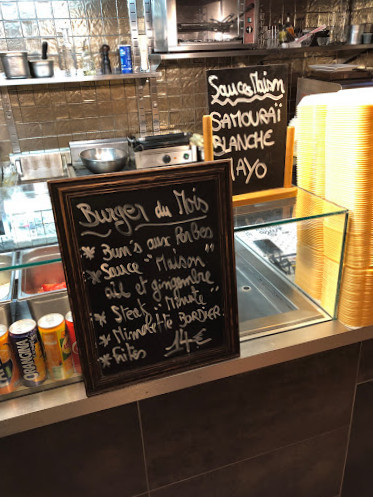 Sauces Maison
SAMOURAÏ
BLANCHE
MAYO
Burger du Mois
* Bun's aux
* Sauce "Maison"
ail et gingembre
* Steak "Minute"
* Mimolette BORDIER
* Frites 14€
ORANGINA